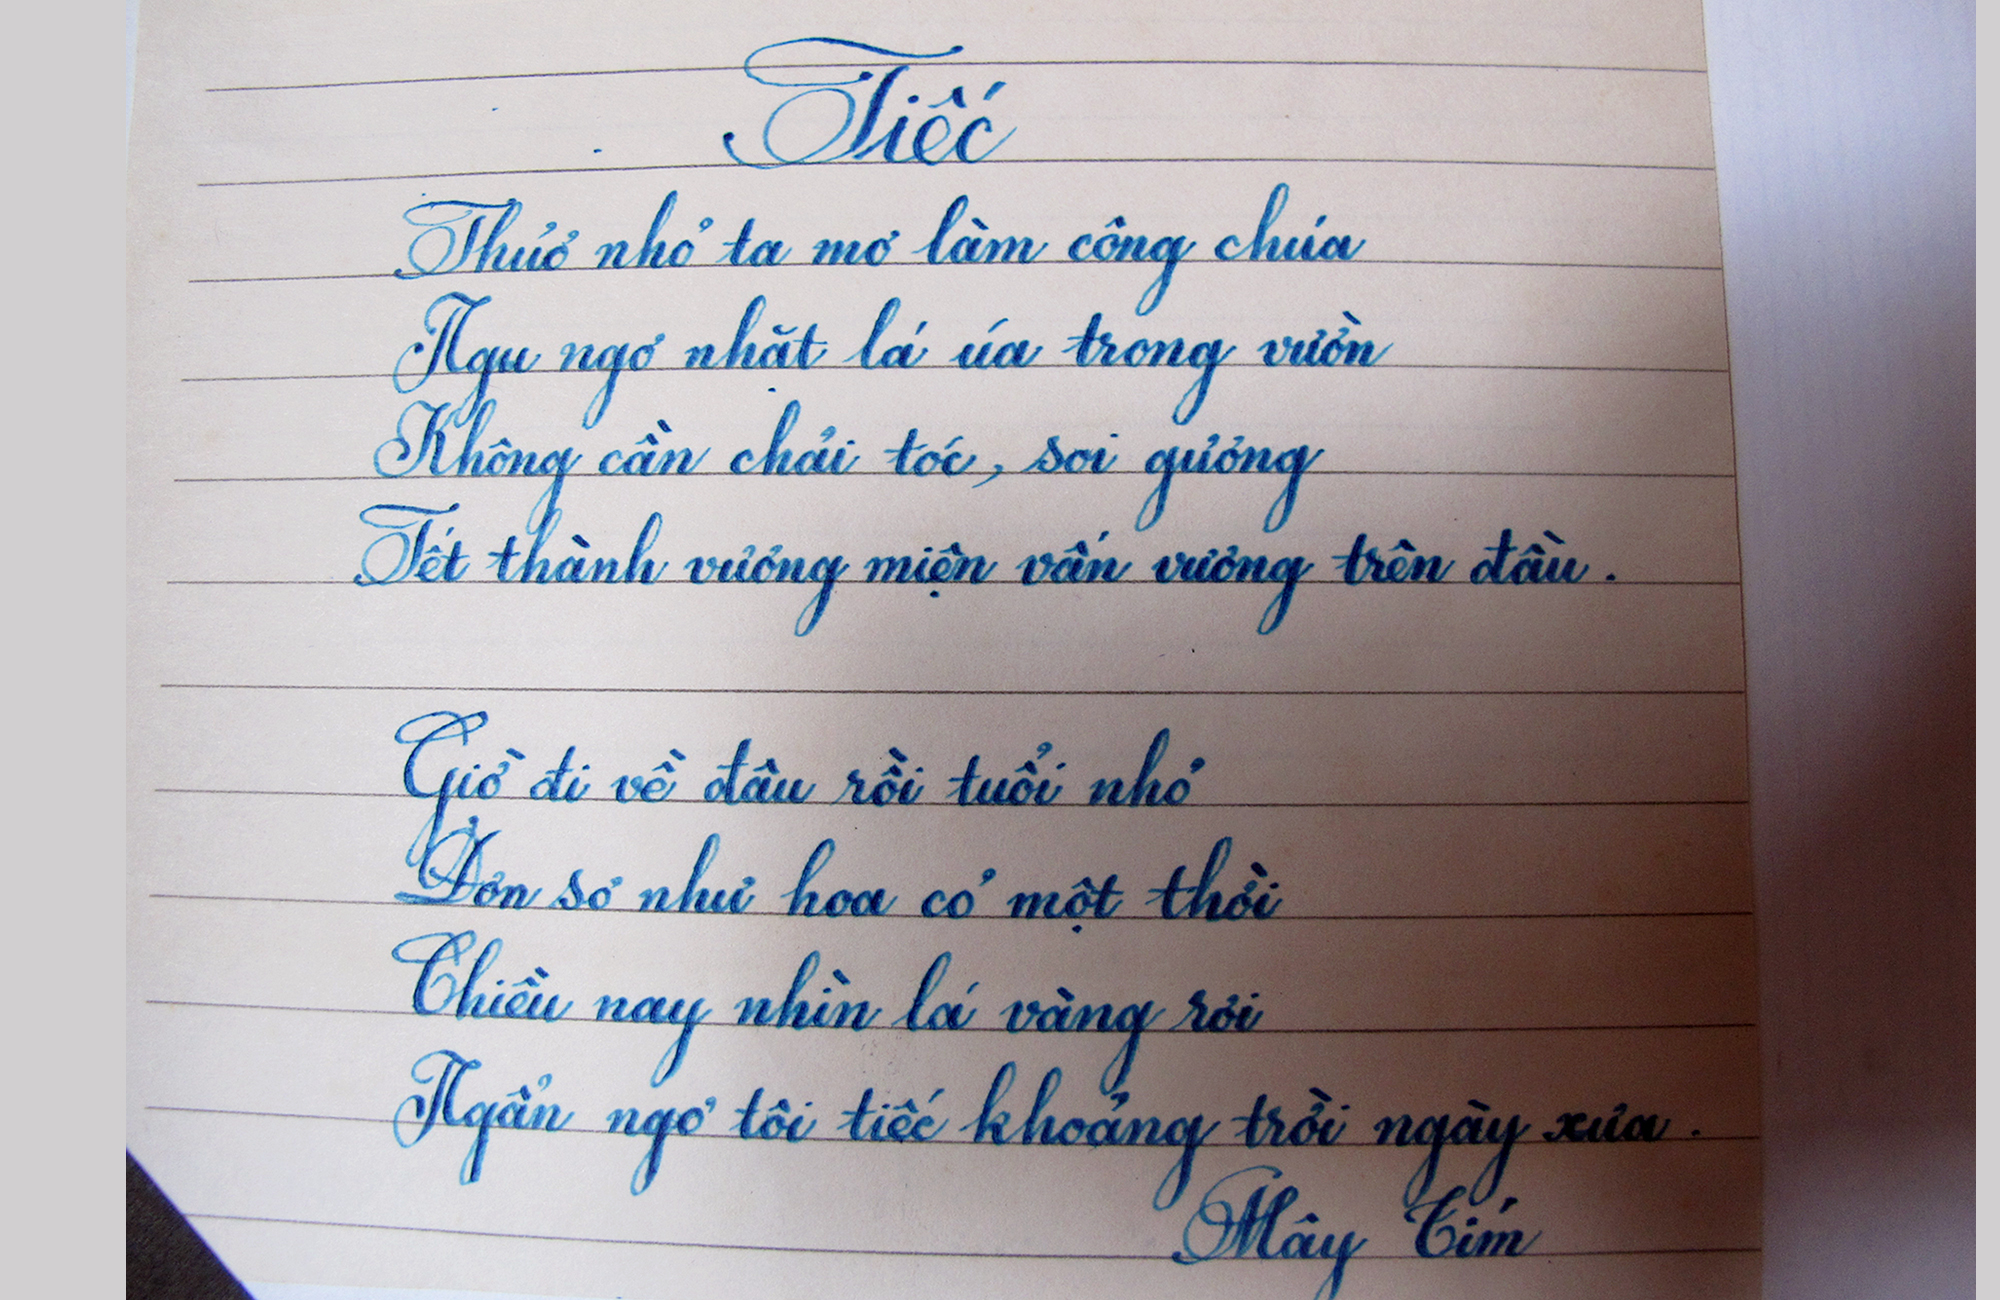 Tiếc
Thuở nhỏ ta mơ làm công chúa
Ngu ngơ nhặt lá úa trong vườn
Không cần chải tóc, soi gương
Tết thành vương miện vấn vương trên đầu.
Giờ đi về đâu rồi tuổi nhỏ
Đơn sơ như hoa cỏ một thời
Chiều nay nhìn lá vàng rơi
Ngẩn ngơ tôi tiếc khoảng trời ngày xưa.
Mây Tím